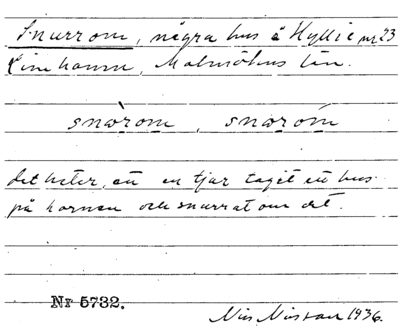 Snurrom, några hus å Hyllie nr 23
Limhamn, Malmöhus län.
snòrom, snoróm
det heter, att en tjur tagit ett hus
på hornen och snurrat om det.
Nr 5732.
Nils Nilsson 1936.